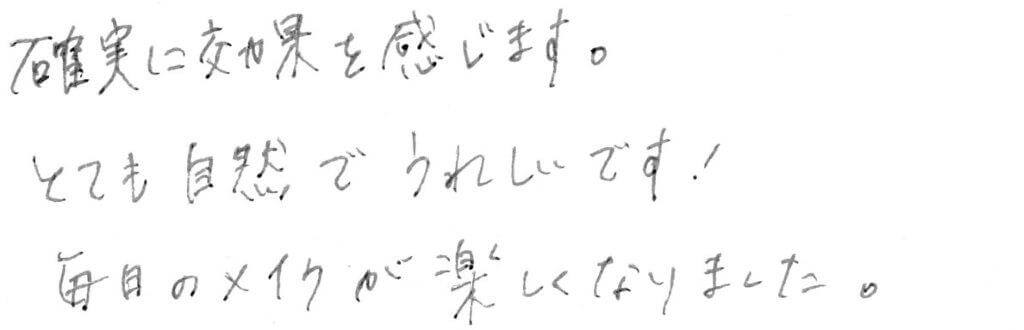 確実に効果を感じます。
とても自然でうれしいです!
毎日のメイクが楽しくなりました。